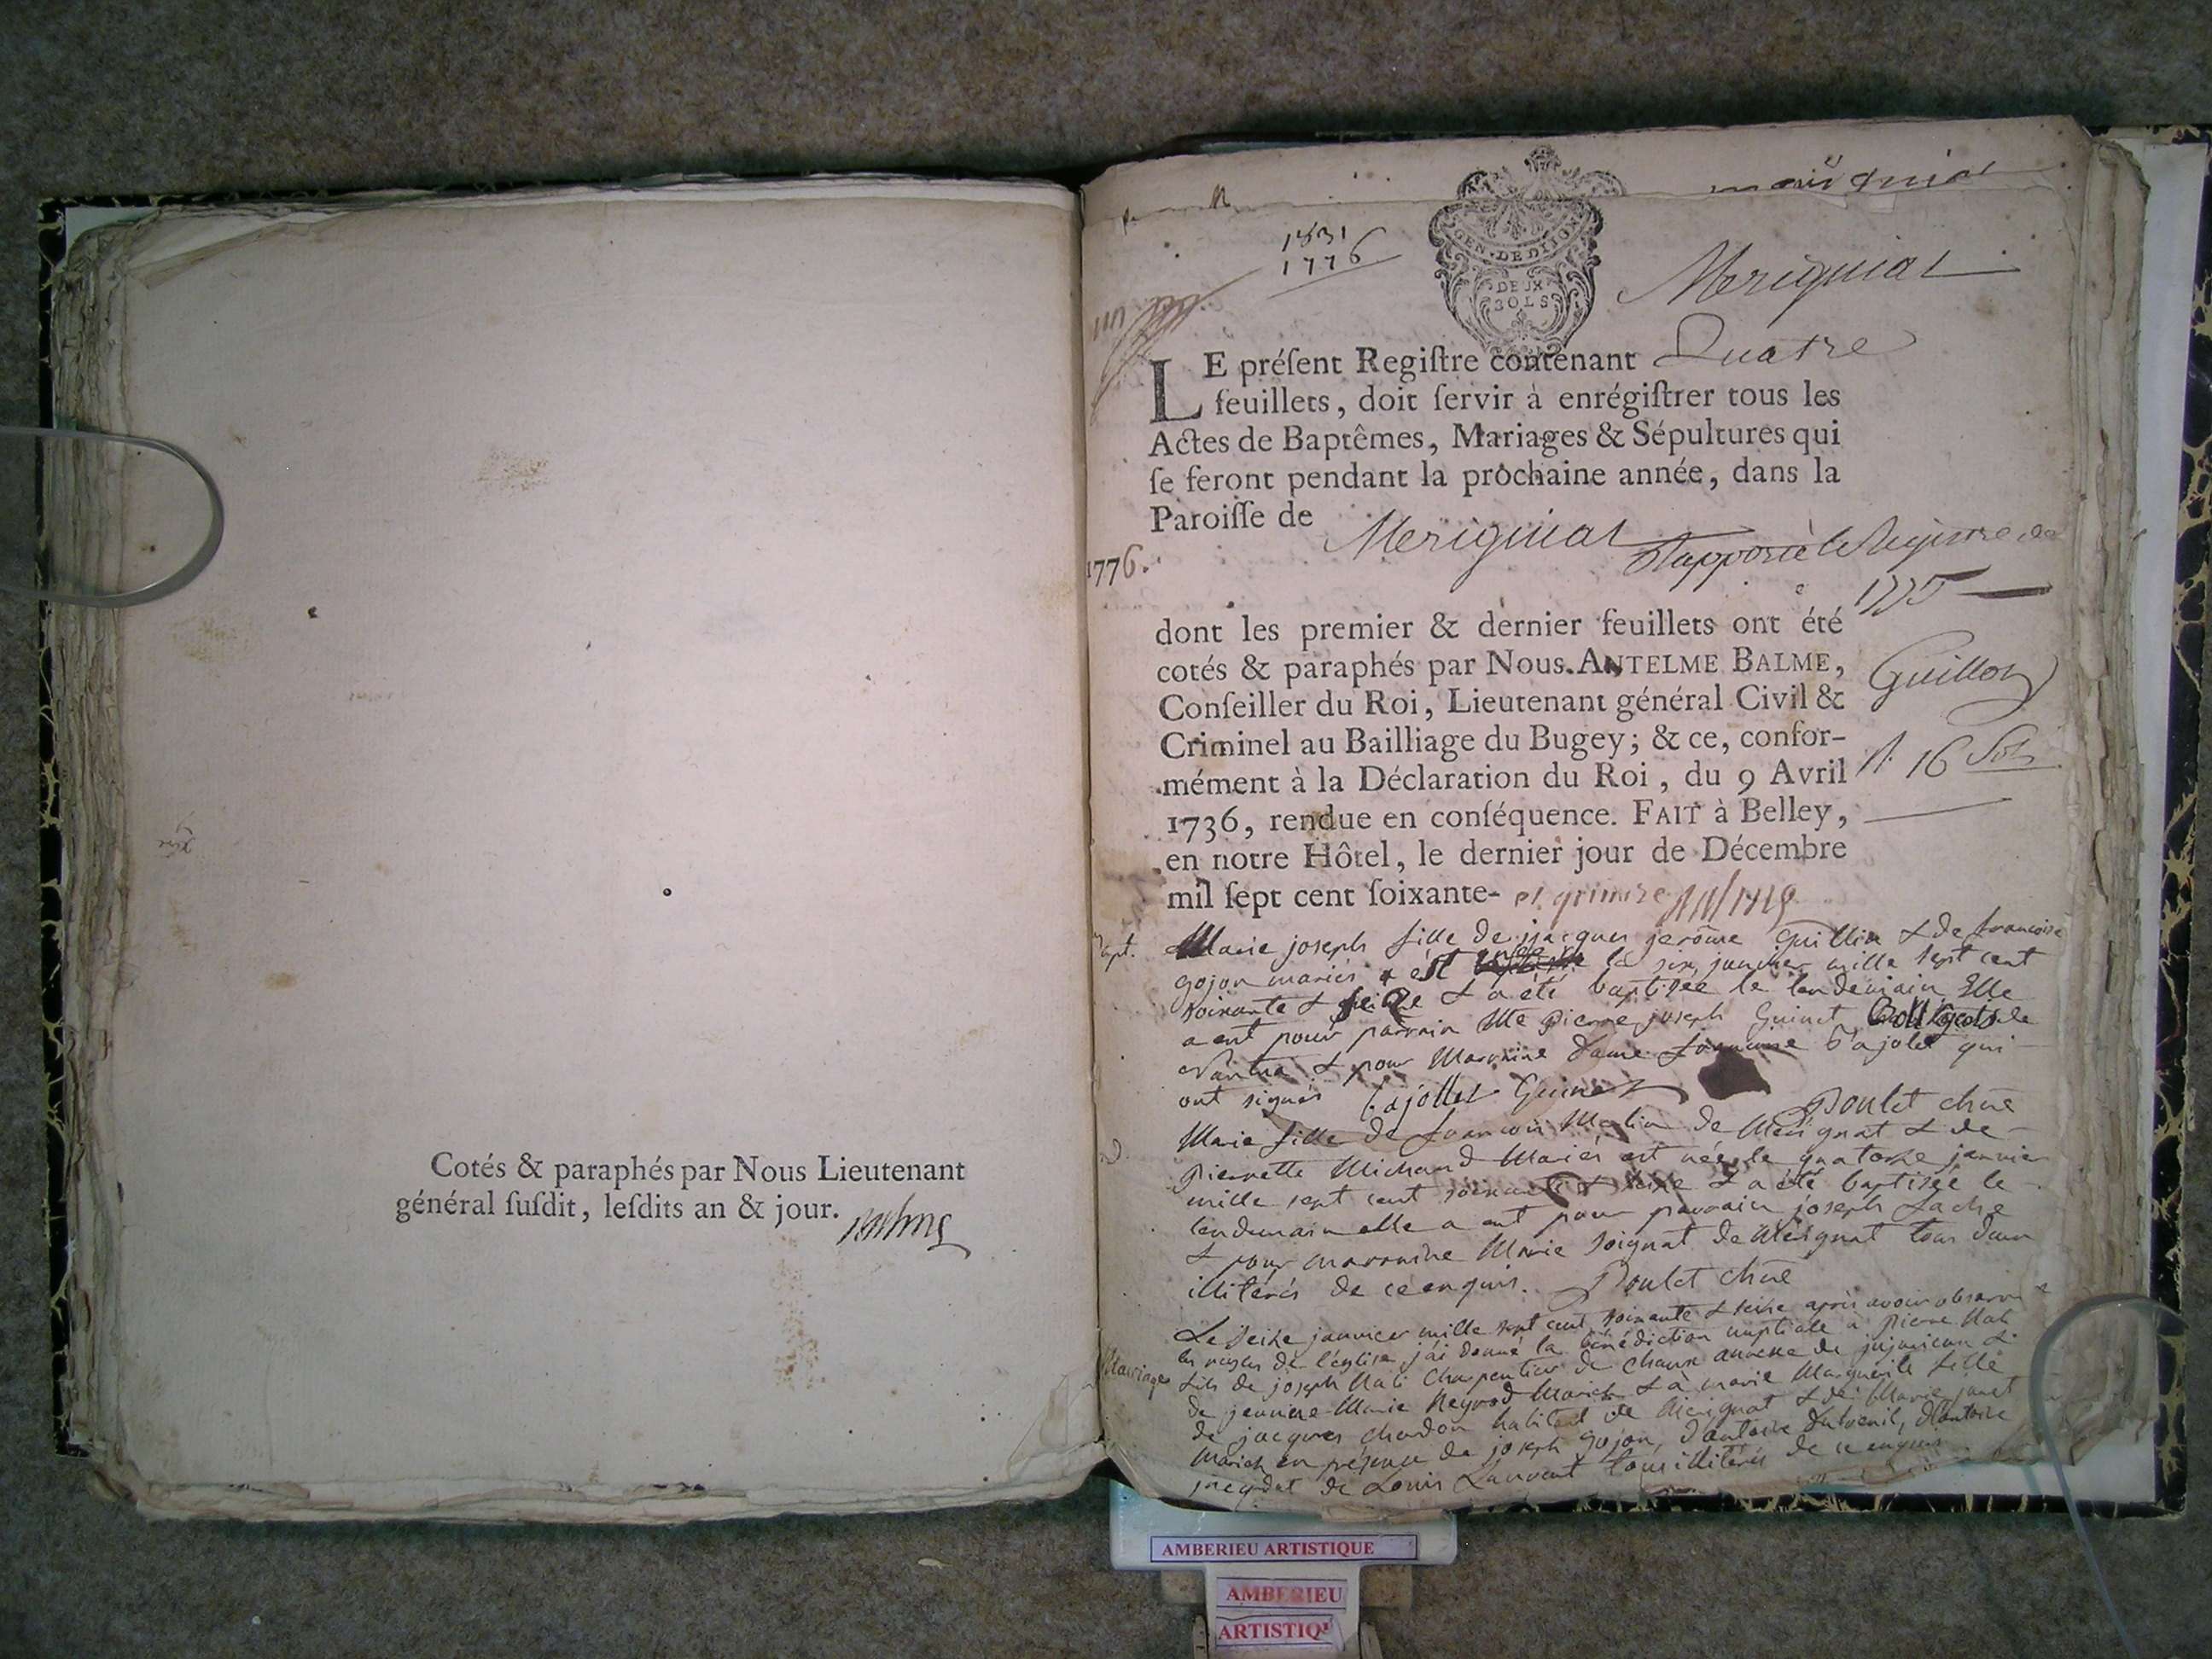 Cotés & paraphés par Nous Lieutenant
général ſuſdit, leſdits an & jour.
1831
1776
GEN. DE DIJON
DEUX
SOLS
Merignat
LE préſent Regiſtre contenant Quatre
feuillets, doit ſervir à enrégiſtrer tous les
Actes de Baptêmes, Mariages & Sépultures qui
ſe feront pendant la prochaine année, dans la
Paroiſſe de Merignat
Rapporté le Registre de
1775
1776.
dont les premier & dernier feuillets ont été
cotés & paraphés par Nous ANTELME BALME,
Conſeiller du Roi, Lieutenant général Civil &
Criminel au Bailliage du Bugey; & ce, confor-
mément à la Déclaration du Roi, du 9 Avril
1736, rendue en conſéquence. FAIT à Belley,
en notre Hôtel, le dernier jour de Décembre
mil ſept cent ſoixante- et quinze
Guillon
16 Sols
Bapt.
Marie joseph fille de jacques jerôme Guillin & de francoise
gojon mariés est le six janvier mille sept cent
soixante & seize & a été baptisée le lendemain Elle
a eut pour parrain Me pierre joseph Guinet de
Nantua & pour Marraine dame francoise Bajolet qui
ont signés Bajollet Guinet
Poulet
Marie fille de francois Merlin de Merignat & de
Pierrette Michaud Mariés est née le quatorze janvier
mille sept cent soixante & seize & a été baptisée le
lendemain elle a eut pour parrain joseph
& pour marraine Marie Soignat de Merignat tous deux
illitérés de ce enquis. Poulet
Mariage
Le seize janvier mille sept cent soixante & seize après avoir observé
les regles de l'église j'ai donné la bénédiction nuptiale a pierre
fils de joseph Charpentier de Chaux annexe de jujurieux &
de jeanne Marie Reynod Mariés & à marie Marguerite fille
de jacques chardon habitant de Merignat & de Marie
Mariés en présence de joseph gojon, d'antoine dubreuil, d'antoine
de Louis Laurent tous illitérés de ce enquis
AMBERIEU ARTISTIQUE
AMBERIEU
ARTISTIQ